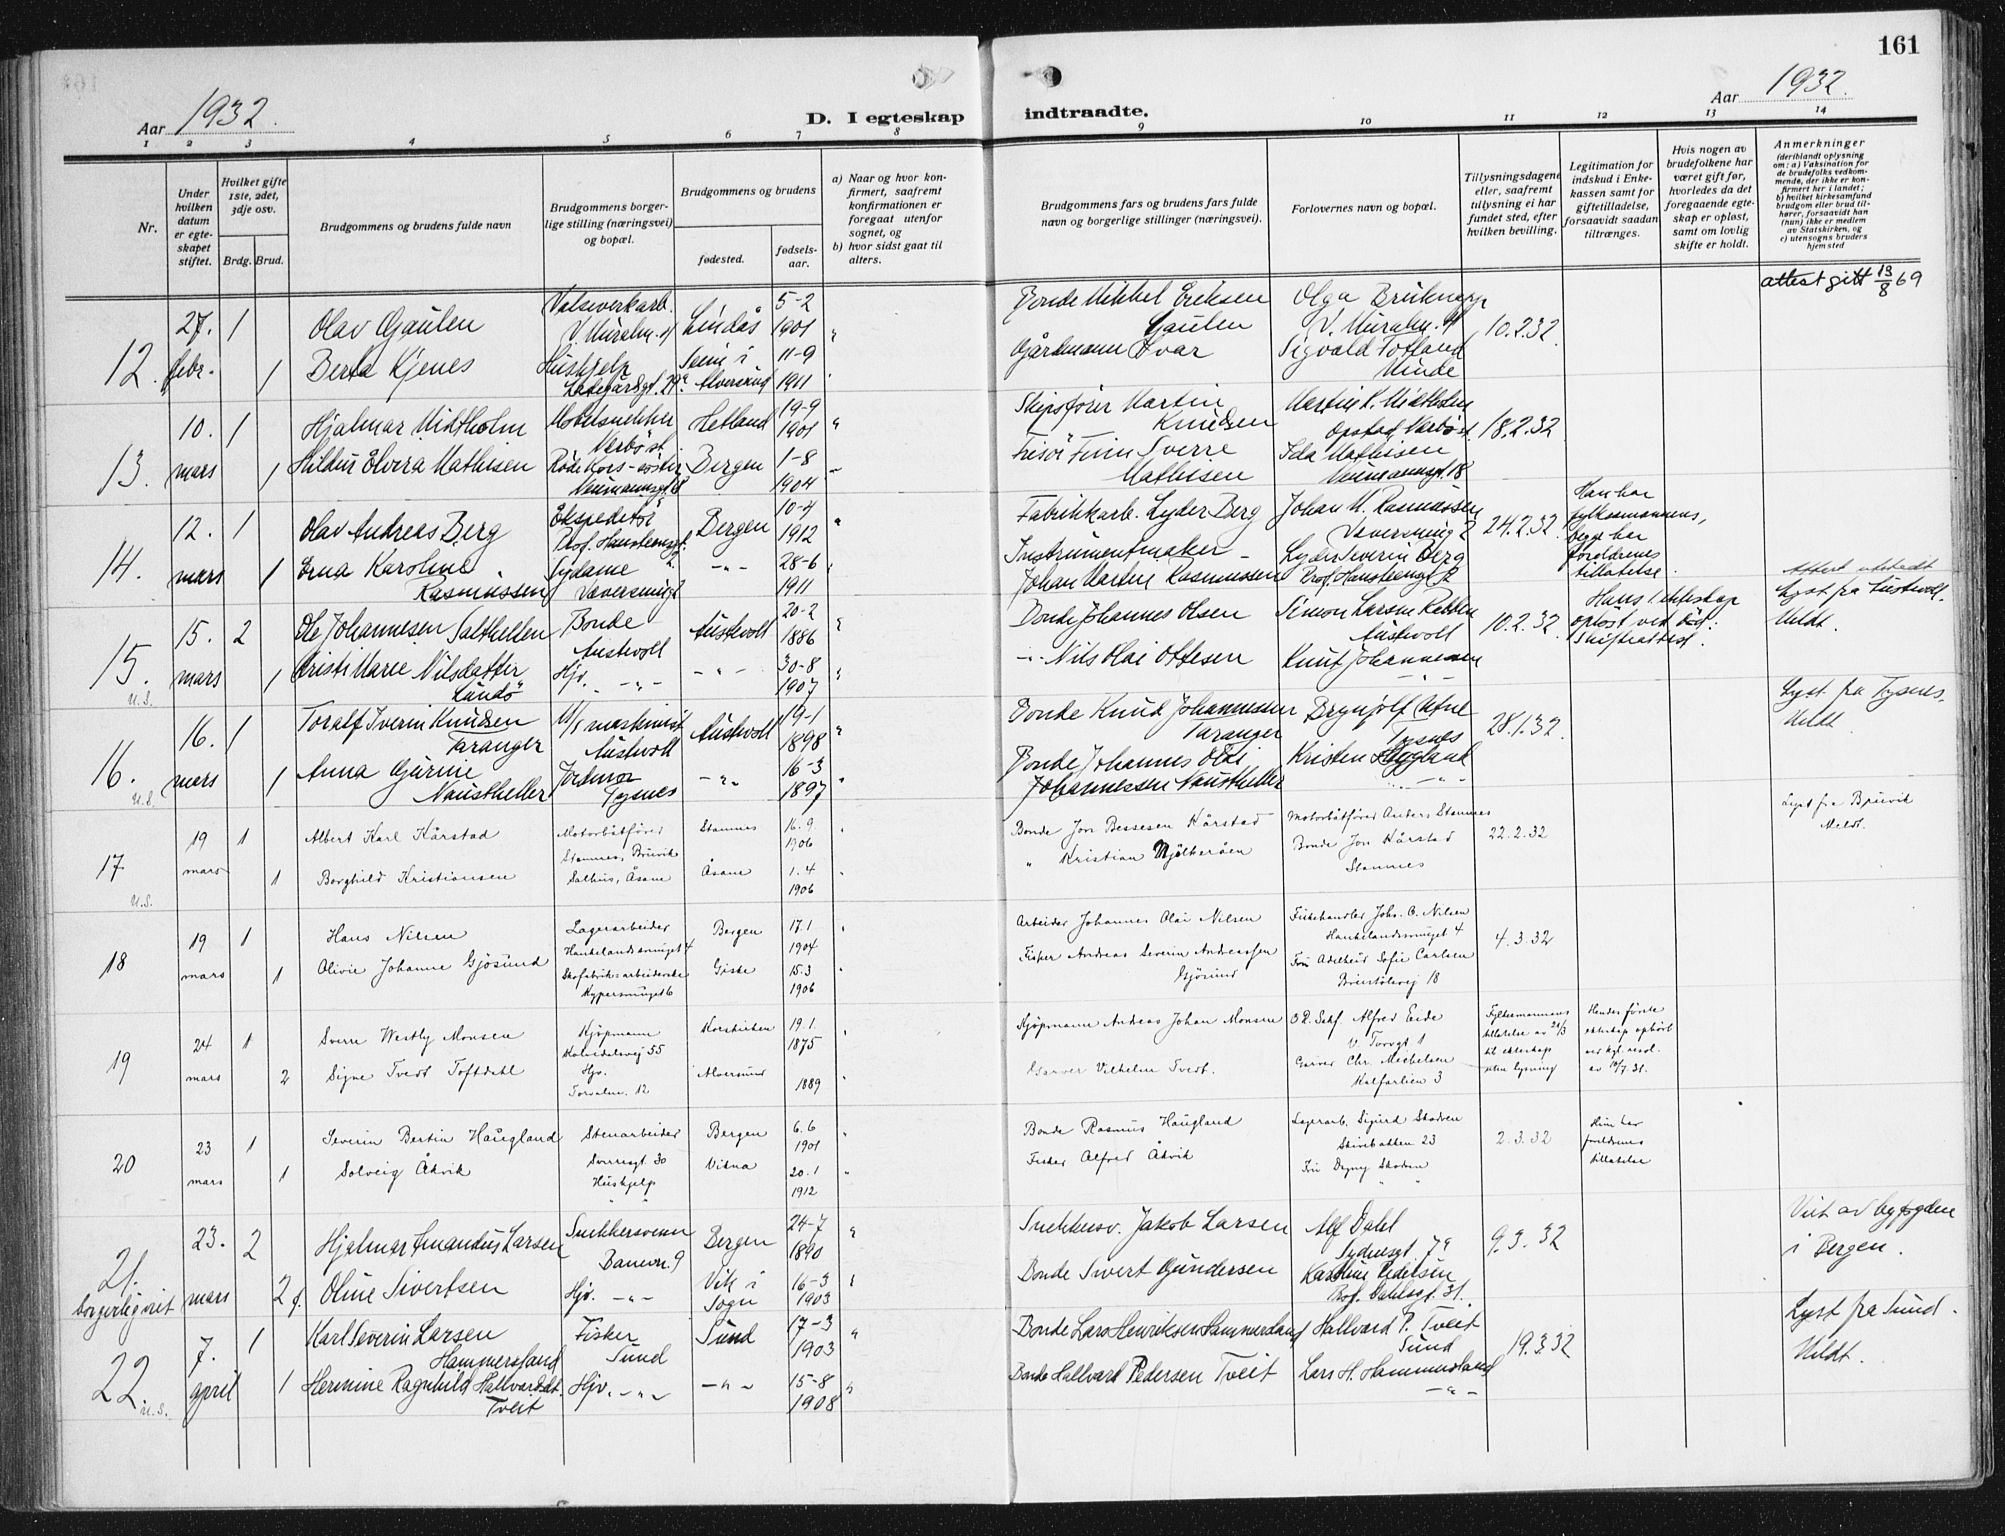 161
Aar 1932.
D. I egteskap indtraadte.
Aar 1932.
1 2 3 4 5 6 7 8 9 10 11 12 13 14
Nr.
Under hvilken datum er egteskapet stiftet.
Hvilket gifte 1ste, 2det, 3dje osv.
Brdg. Brud.
Brudgommens og brudens fulde navn
Brudgommens borgerlige stilling (næringsvei) og bopæl.
Brudgommens og brudens
fødested.
fødselsaar.
a) Naar og hvor konfirmert, saafremt konfirmationen er foregaat utenfor sognet, og
b) hvor sidst gaat til alters.
Brudgommens fars og brudens fars fulde navn og borgerlige stillinger (næringsvei).
Forlovernes navn og bopæl.
Tillysningsdagene eller, saafremt tillysning ei har fundet sted, efter hvilken bevilling.
Legitimation for indskud i Enkekassen samt for giftetilladelse, forsaavidt saadan tiltrænges.
Hvis nogen av brudefolkene har været gift før, hvorledes da det foregaaende egteskap er opløst, samt om lovlig skifte er holdt.
Anmerkninger
(deriblandt oplysning om: a) Vaksination for de brudefolks vedkommende, der ikke er konfirmert her i landet; b) hvilket kirkesamfund brudgom eller brud tilhører, forsaavidt han (hun) ikke er medlem av Statskirken, og c) utensogns bruders hjemsted
attest gitt 13/8 69
12. 27. febr. 1 Olav Gaulen Valseverkarb. Lindås 5-2 1901 Bonde Mikkel Eriksen Gaulen Olga 10.2.32
1 Berta Kjenes Hushjelp Seim i Alversund 11-9 1911 Gårdmann Ivar Sigvald Totland Minde
13. 10. mars 1 Hjalmar Midtholm Hetland 19-9 1901 Skipsfører Martin Knudsen 18.2.32
1 Hildur Elvira Mathisen Røde Kors-søster Neumannsgt. 18 Bergen 1-8 1904 Frisør Finn Sverre Mathisen Ida Mathisen Neumannsgt. 18
14. 12. mars 1 Olav Andreas Berg Ekspeditør Prof. Hansteensgt. Bergen 10-4 1912 Fabrikkarb. Lyder Berg Johan M. Rasmussen 24.2.32 Han har fylkesmannens, begge har foreldrenes tillatelse.
1 Erna Karoline Rasmussen Sydame -"- 28-6 1911 Instrumentmaker Johan Martin Rasmussen Lyder Severin Berg
15. u.s. 15. mars 2 Ole Johannesen Salthellen Bonde Austevoll Austevoll 20-2 1886 Bonde Johannes Olsen Simon Larsen Rabben Austevoll 10.2.32 Hans 1. ekteskap opløst ved død: skifteattest. Lyst fra Austevoll. Meldt.
1 Kristi Marie Nilsdatter Lundø Hjv. -"- -"- 30-8 1907 -"- Nils Olai Ottesen Knut Johannesen -"-
16. u.s. 16. mars 1 Toralf Iverin Knudsen Taranger M/k maskinist Austevoll Austevoll 19-1 1898 Bonde Knud Johannessen Taranger Brynjolf Tysnes 28.1.32 Lyst fra Tysnes. Meldt.
1 Anna Gurine Naustheller Jordmor Tysnes -"- 16-3 1897 Bonde Johannes Olai Johannessen Naustheller Kristen -"-
17. u.s. 19 mars 1 Albert Karl Kårstad Motorbåtfører Stamnes, Bruvik Stamnes 16.9 1906 Bonde Jon Bessesen Kårstad Motorbåtfører Anders Stamnes 22.2.32 Lyst fra Bruvik Meldt.
1 Borghild Kristiansen Salhus, Åsane Åsane 1.4 1906 " Kristian Mjølkeråen Bonde Jon Kårstad Stamnes
18 19 mars 1 Hans Nilsen Lagerarbeider Haukelandssmuget 4 Bergen 17.1 1904 Arbeider Johannes Olai Nilsen Fiskehandler Johs. O. Nilsen Haukelandssmuget 4 4.3.32
1 Olivie Johanne Gjøsund Skofabrikkarbeiderske Giske 15.3 1906 Fisker Andreas Severin Andreassen Gjøsund Fru Adelheid Sofie Carlsen Breistølsvej 18
19 24 mars 1 Sverre Westly Monsen Kjøpmann Kalvedalsvej 55 Korskirken 19.1. 1875 Kjøpmann Andreas Johan Monsen O.R. Sakf. Alfred Eide V. Torvgt 1 Fylkesmannens tillatelse av 21/3 til ekteskap uten lysning Hendes første ekteskap ophørt ved kgl. resol. av 10/7.31.
2 Signe Tvedt Toftdahl Hjv. Torvalm. 12 Alversund 1889 Garver Vilhelm Tvedt. Garver Chr. Michelsen Kalfarlien 3
20 23 mars 1 Severin Bertin Haugland Stenarbeider Sverresgt. 30 Bergen 6.6 1901 Bonde Rasmus Haugland Lagerarb. Sigurd Skodven Skivebakken 23 2.3.32 Hun har foreldrenes tillatelse
1 Solveig Åkvik Hushjelp " " Vikna 20.1 1912 Fisker Alfred Åkvik Fru Dagny Skodven " "
21. borgerlig viet 23. mars 2 Hjalmar Amandus Larsen Snekkersvenn Banevn. 9 Bergen 24-7 1890 Snekkersv. Jakob Larsen Alf Dahl Sydnesgt. 7a 9.3.32 Viet av byfogden i Bergen.
2 f. Oline Sivertsen Hjv. -"- Vik i Sogn 16-3 1903 Bonde Sivert Gundersen Prof. Dahlsgt. 31.
22. u.s. 7. april 1 Karl Severin Larsen Hammersland Fisker Sund Sund 17-3 1903 Bonde Lars Henriksen Hammersland Hallvard P. Tveit Sund 19.3.32 Lyst fra Sund. Meldt.
1 Hermine Ragnhild Hallvardsdt. Tveit Hjv. -"- -"- 15-8 1908 Bonde Hallvard Pedersen Tveit Lars H. Hammersland -"-